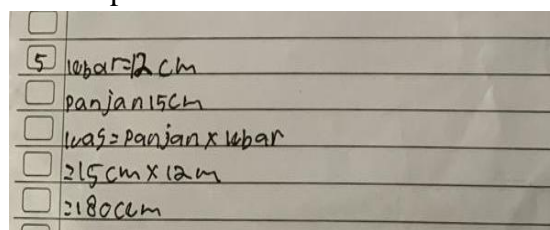 5 lebar=12 cm
panjan 15cm
luas=panjan x lebar
=15cm x 12m
=180cm